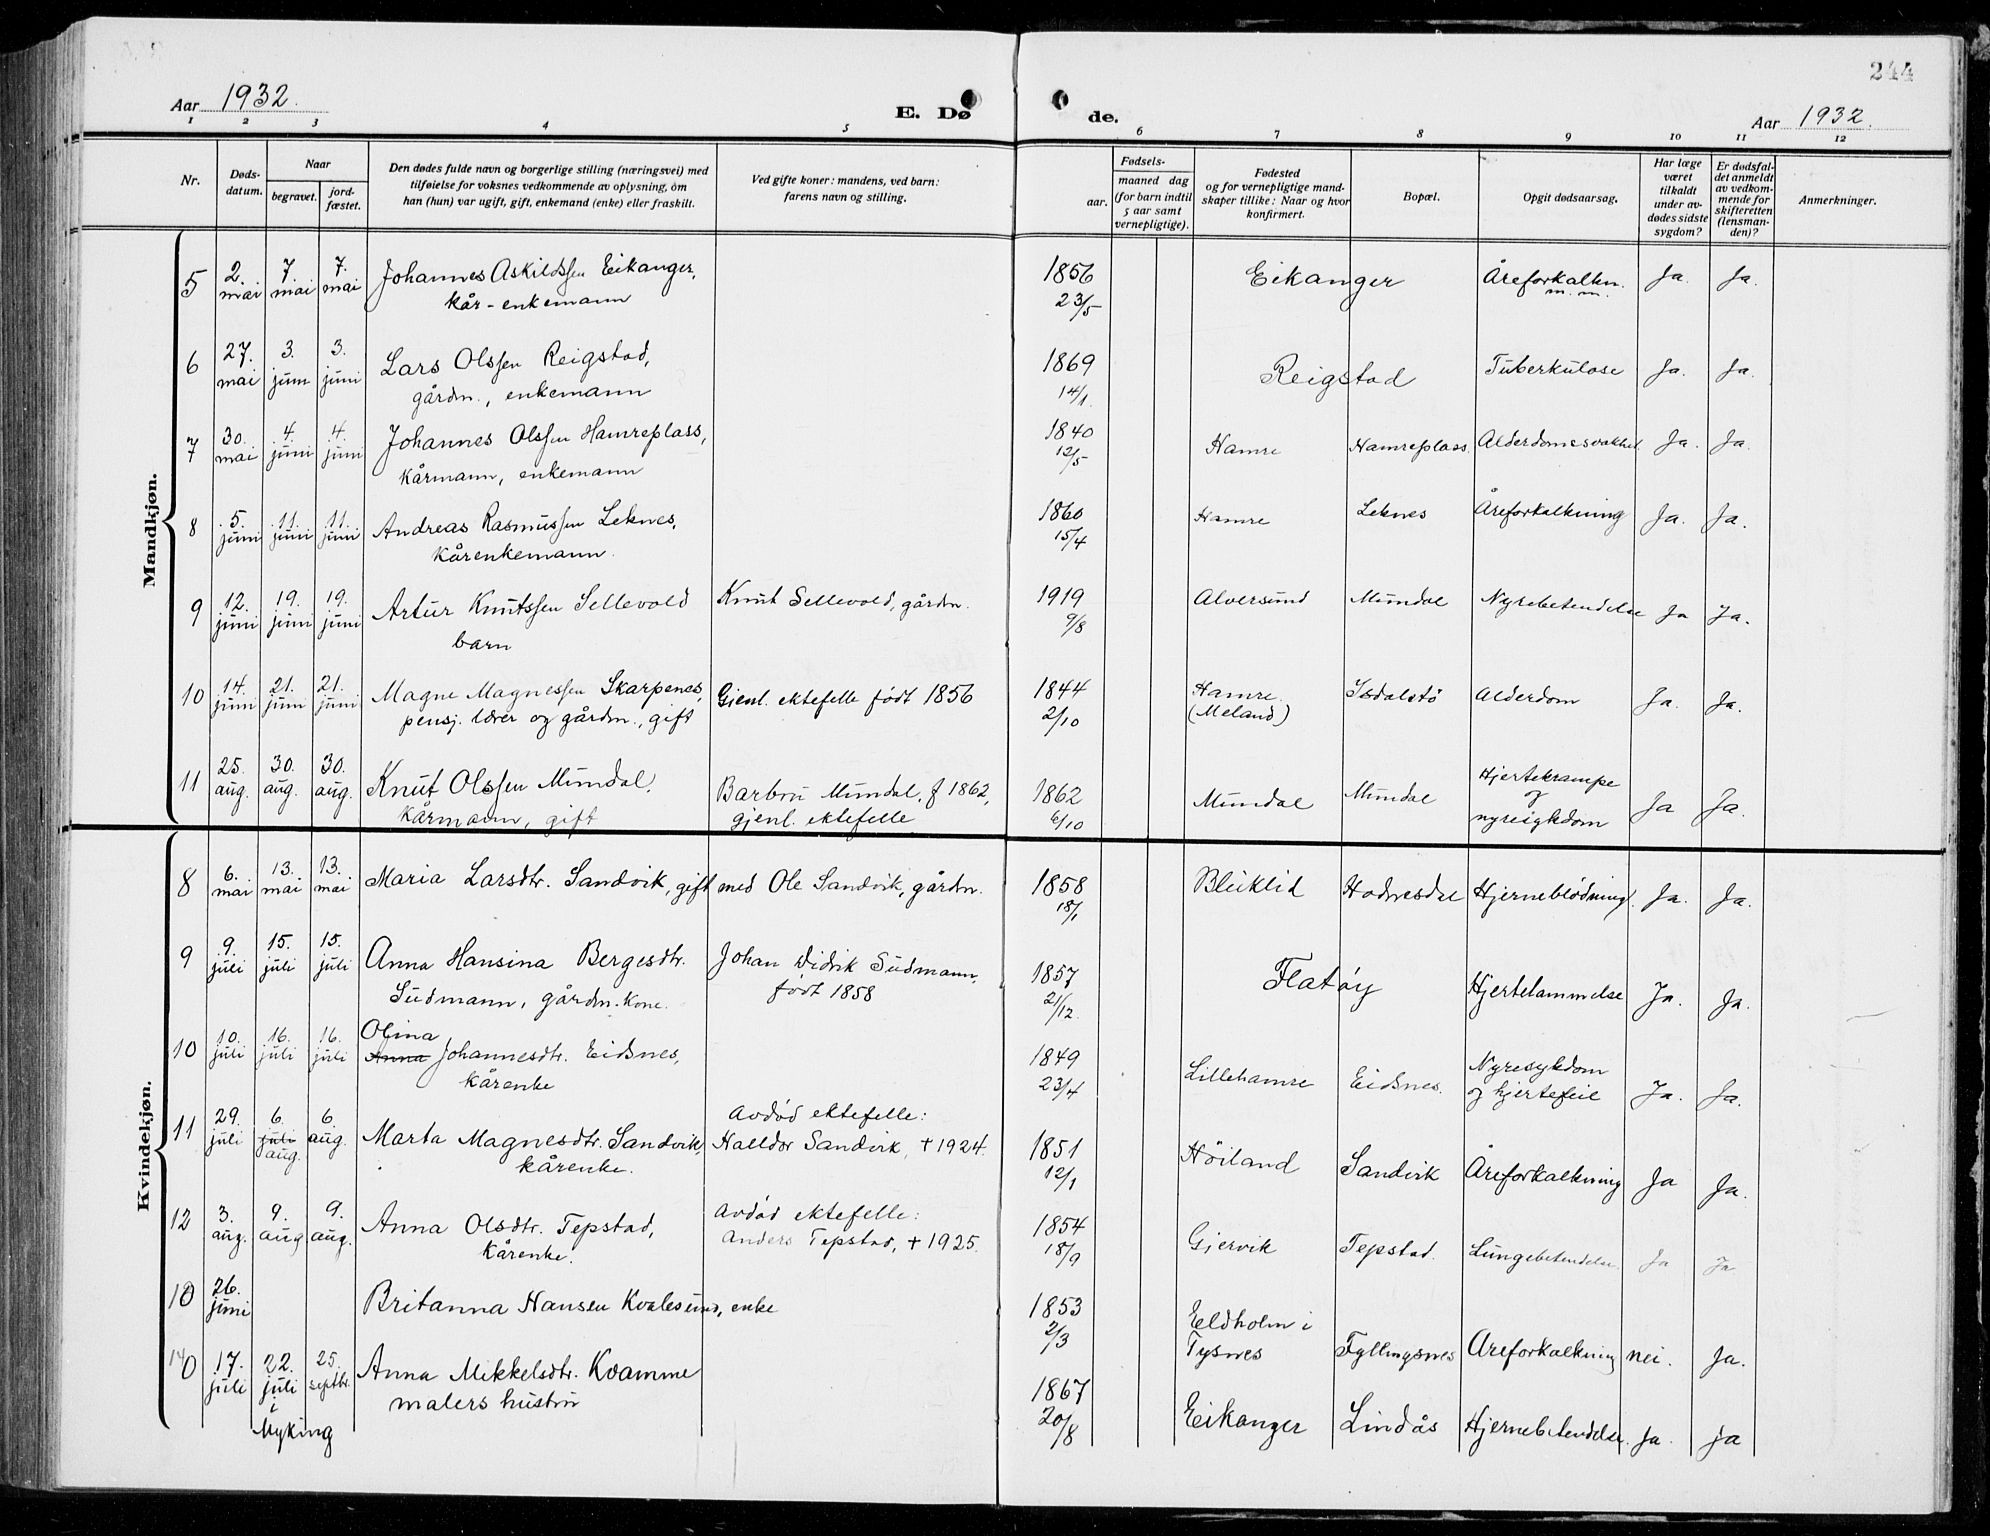 244
Aar 1932. E. Døde. Aar 1932.
1 2 3 4 5 6 7 8 9 10 11 12
Nr.
Dødsdatum.
Naar
begravet.
jordfæstet.
Den dødes fulde navn og borgerlige stilling (næringsvei) med
tilføielse for voksnes vedkommende av oplysning, om
han (hun) var ugift, gift, enkemand (enke) eller fraskilt.
Ved gifte koner: mandens, ved barn:
farens navn og stilling.
Fødsels-
aar.
maaned dag
(for barn indtil
5 aar samt
vernepligtige).
Fødested
og for vernepligtige mand-
skaper tillike: Naar og hvor
konfirmert.
Bopæl.
Opgit dødsaarsag.
Har læge
været
tilkaldt
under av-
dødes sidste
sygdom?
Er dødsfal-
det anmeldt
av vedkom-
mende for
skifteretten
(lensman-
den)?
Anmerkninger.
Mandkjøn.
5 2. mai 7. mai 7. mai Johannes Askildssen Eikanger, 1856 Eikanger Åreforkalkn. Ja. Ja.
kår-enkemann 23/5 m.m.
6 27. mai 3. juni 3. juni Lars Olssen Reigstad, 1869 Reigstad Tuberkulose Ja. Ja.
gårdm., enkemann 14/1.
7 30. mai 4. juni 4. juni Johannes Olssen Hamreplass, 1840 Hamre Hamreplass. Alderdomssvakhet. Ja. Ja.
Kårmann, enkemann 12/5
8 5. juni 11. juni 11. juni Andreas Rasmussen Leknes, 1860 Hamre Leknes Åreforkalkning Ja. Ja.
Kårenkemann. 15/4
9 12. juni 19. juni 19. juni Artur Knutssen Sellevold Knut Sellevold, gårdm. 1919 Alversund Mundal Nyrebetendelse Ja Ja.
barn 9/8
10 14. juni 21. juni 21. juni Magne Magnessen Skarpenes, Gjenl. ektefelle født 1856 1844 Hamre. Isdalstö Alderdom Ja. Ja.
pensj. lærer og gårdm., gift 2/10 (Meland)
11 25. aug. 30. aug. 30. aug. Knut Olssen Mundal, Barbru Mundal, f 1862, 1862 Mundal Mundal Hjertekrampe Ja Ja.
Kårmann, gift gjenl. ektefelle 6/10 og
nyresykdom
Kvindekjøn.
8 6. mai 13. mai 13. mai Maria Larsdtr. Sandvik, gift med Ole Sandvik, gårdm. 1858 Bleiklid Hodnesdal Hjerneblödning. Ja. Ja.
18/1
9 9. juli 15. juli 15. juli Anna Hansina Bergesdtr. Johan Didrik Sudmann, 1857 Flatøy Hjertelammelse Ja. Ja.
Sudmann, gårdm. kone. født 1858 21/12.
10 10. juli 16. juli 16. juli Olina
Anna Johannesdtr. Eidsnes, 1849 Lillehamre Eidsnes. Nyresykdom Ja. Ja.
kårenke 23/4 og hjertefeil
11 29. juli 6. juli aug. 6 aug. Marta Magnesdtr. Sandvik, Avdöd ektefelle:
Halldor Sandvik, + 1924. 1851 Höiland Sandvik Åreforkalkning Ja Ja.
kårenke. 12/1
12 3. aug. 9. aug 9. aug. Anna Olsdtr. Tepstad, Avdöd ektefelle:
Anders Tepstad, + 1925. 1854 Gjervik Tepstad. Lungebetendelse Ja Ja
Kårenke. 18/9
26. juni Britanna Hansen Kvalesund, enke 1853 Eldholm i Fyllingsnes Åreforkalkning nei. Ja.
2/3 Tysnes
17. juli 22. juli i Myking 25. septbr. Anna Mikkelsdtr. Kvamme 1867 Eikanger Lindås Hjernebetendelse. Ja. Ja
malers hustru 20/8